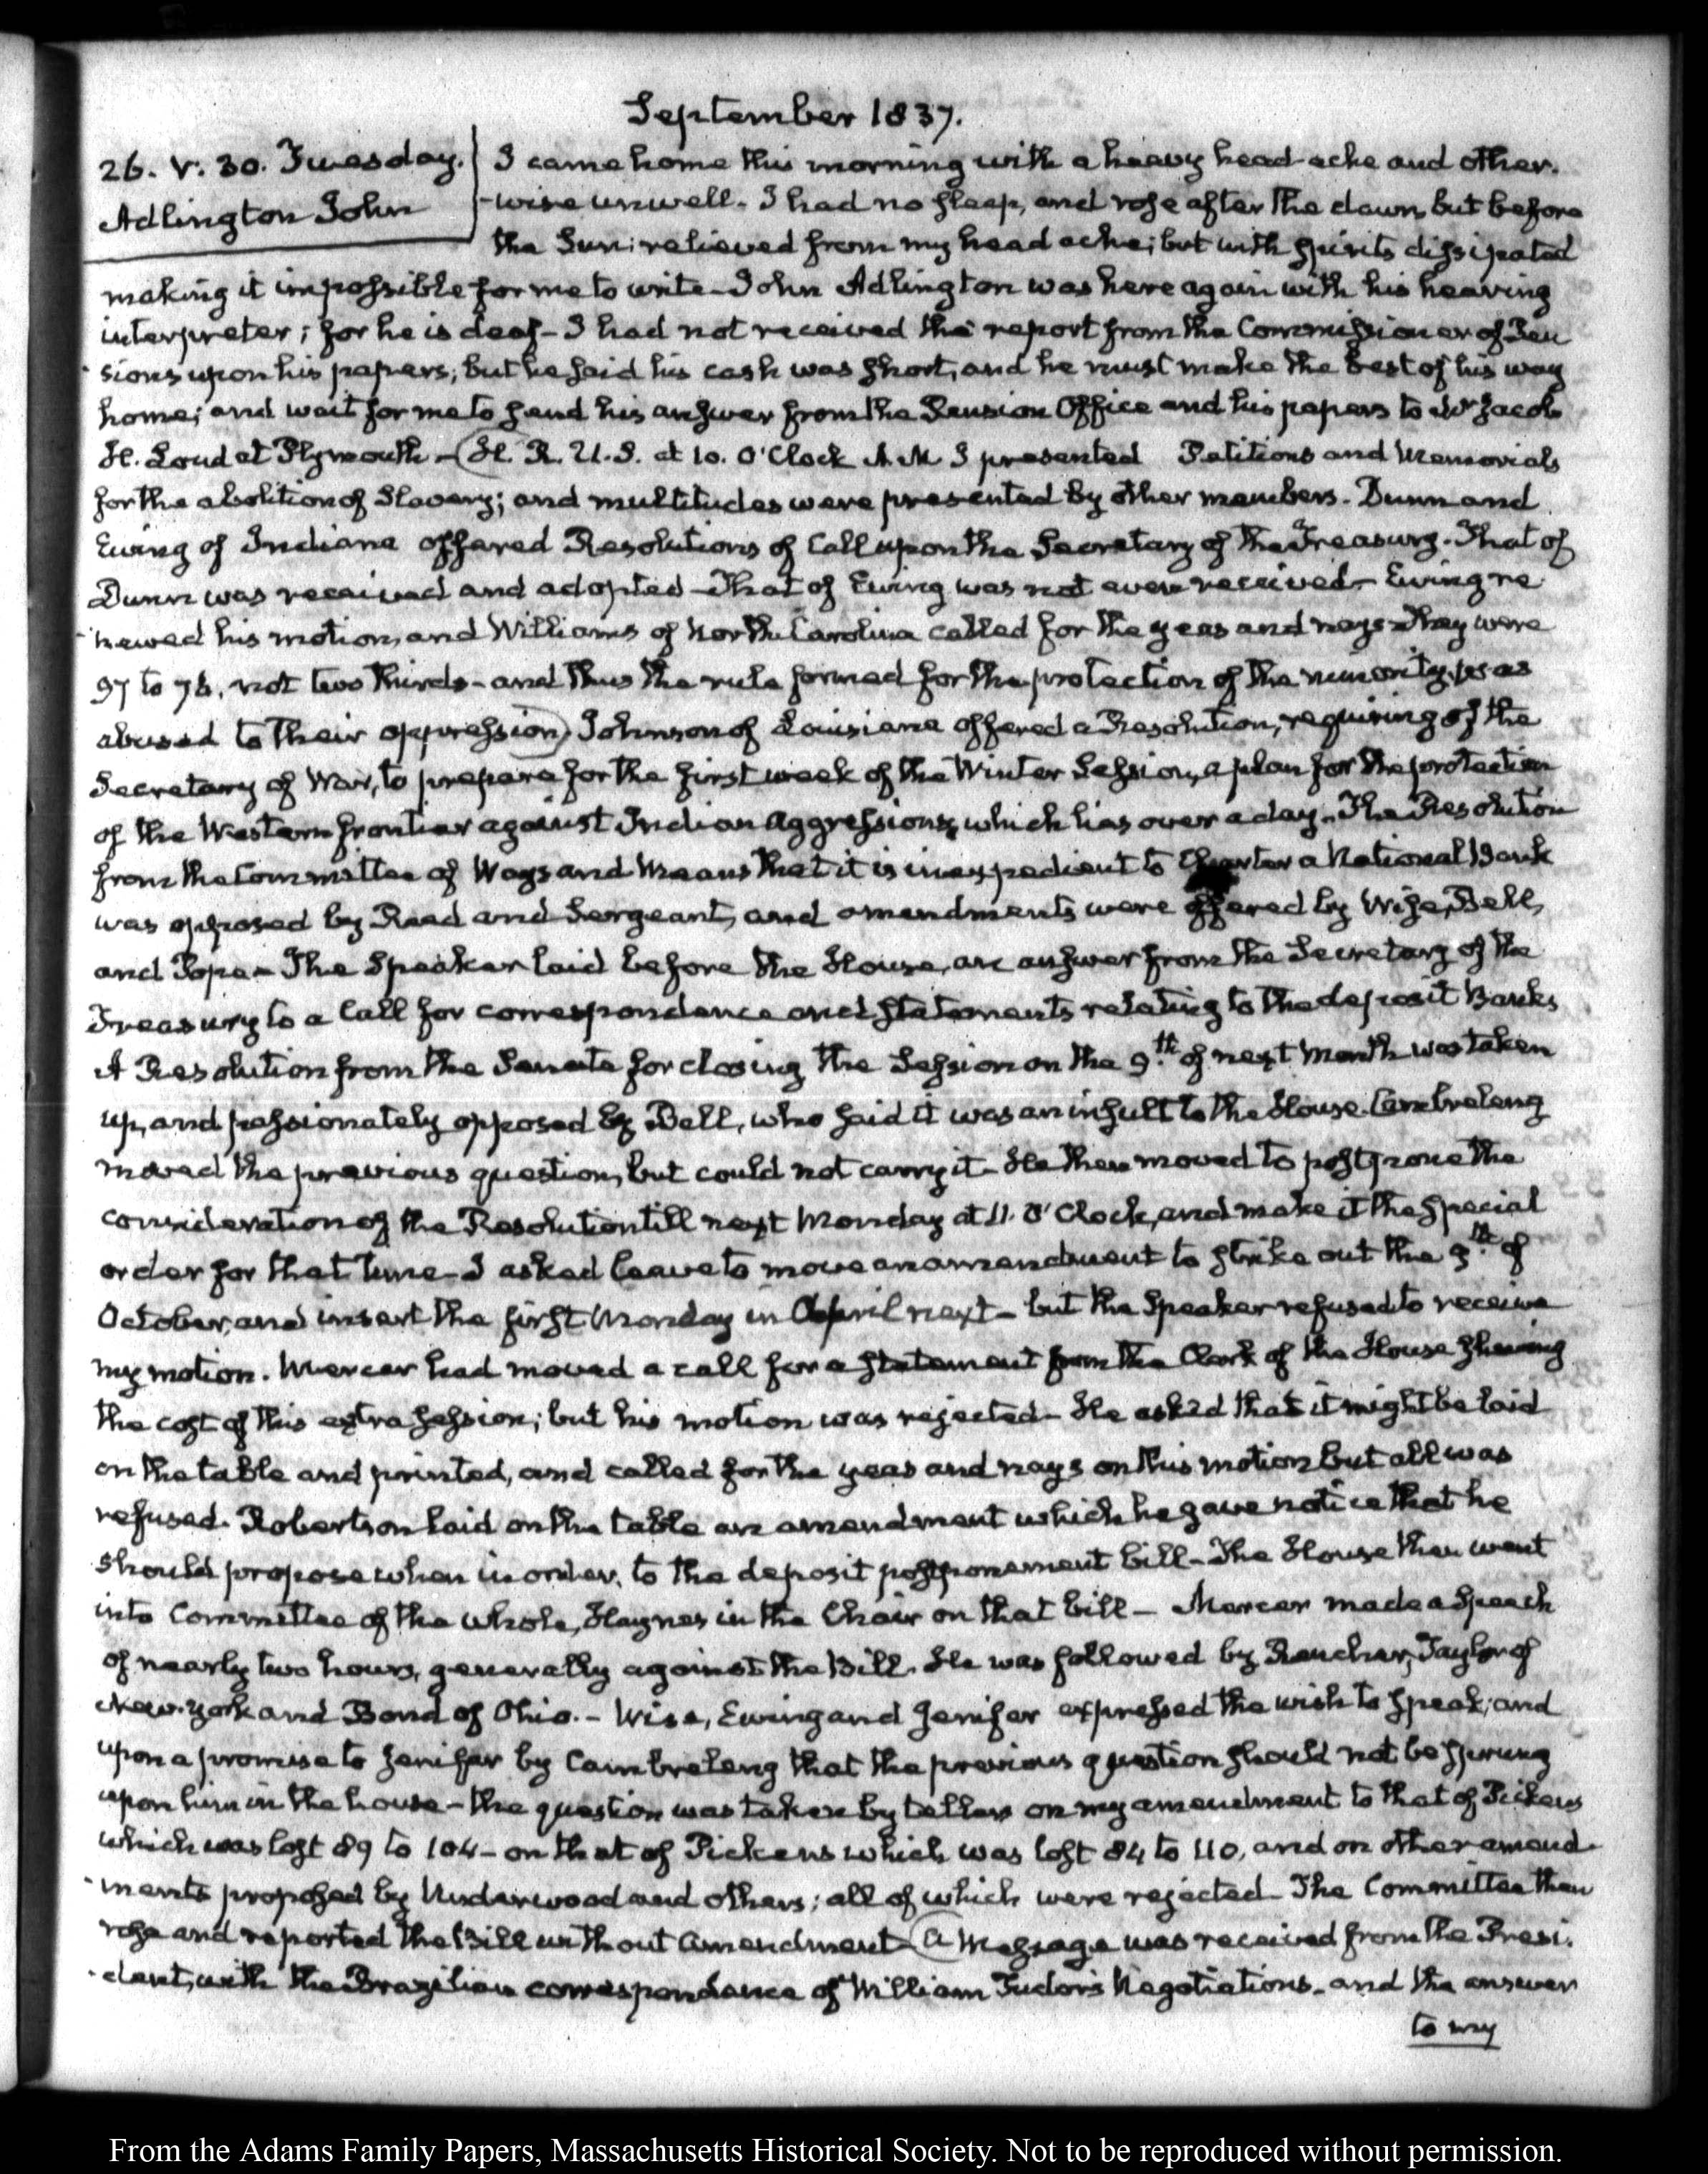 September 1837.
26. V: 30. Tuesday.
Adlington John
I came home this morning with a heavy head-ache and other-
-wise unwell. I had no sleep, and rose after the dawn, but before
the Sun: relieved from my head ache; but with spirits dissipated
making it impossible for me to write. John Adlington was here again with his hearing
interpreter; for he is deaf. I had not received the report from the Commissioner of Pen
-sions upon his papers; but he said his cash was short, and he must make the best of his way
home; and wait for me to send his answer from the Pension Office and his papers to Mr Jacob
H. Loud at Plymouth. (H. R. U.S. at 10. O'Clock A.M. I presented Petitions and Memorials
for the abolition of Slavery; and multitudes were presented by other members. Dunn and
Ewing of Indiana offered Resolutions of Call upon the Secretary of the Treasury. That of
Dunn was received and adopted. That of Ewing was not even received. Ewing re
-newed his motion, and Williams of North Carolina called for the yeas and nays. They were
97 to 76, not two thirds. and thus the rule formed for the protection of the minority is
abused to their oppression) Johnson of Louisiana offered a Resolution, requiring of the
Secretary of War, to prepare for the first week of the Winter Session, a plan for the protection
of the Western frontier against Indian Aggressions, which lies over a day. The Resolution
from the Committee of Ways and Means that it is inexpedient to Charter a National Bank
was opposed by Reed and Sergeant, and amendments were offered by Wise, Bell,
and Pope. The Speaker laid before the House, an answer from the Secretary of the
Treasury to a Call for correspondence and statements relating to the deposit Banks
A Resolution from the Senate for closing the Session on the 9th. of next Month was taken
up, and passionately opposed by Bell, who said it was an insult to the House. Cambreleng
moved the previous question, but could not carry it. He then moved to postpone the
consideration of the Resolution till next Monday at 11. O'Clock, and make it the special
order for that time. I asked leave to move an amendment to strike out the 9th. of
October, and insert the first Monday in April next. but the Speaker refused to receive
my motion. Mercer had moved a call for a statement from the Clerk of the House shewing
the cost of this extra session; but his motion was rejected. He asked that it might be laid
on the table and printed, and called for the yeas and nays on this motion but all was
refused. Robertson laid on the table an amendment which he gave notice that he
should propose when in order, to the deposit postponement bill. The House then went
into Committee of the whole, Haynes in the Chair on that bill. Mercer made a speech
of nearly two hours, generally against the Bill. He was followed by Rencher, Taylor of
New-York and Bond of Ohio. Wise, Ewing and Jenifer expressed the wish to speak; and
upon a promise to Jenifer by Cambreleng that the previous question should not be sprung
upon him in the house. the question was taken by tellers on my amendment to that of Pickens
which was lost 89 to 104. on that of Pickens which was lost 84 to 110, and on other amend-
-ments proposed by Underwood and others; all of which were rejected. The Committee then
rose and reported the Bill without Amendment. (A Message was received from the Presi-
-dent, with the Brazilian correspondence of William Tudor's Negotiations. and the answer
to my
From the Adams Family Papers, Massachusetts Historical Society. Not to be reproduced without permission.